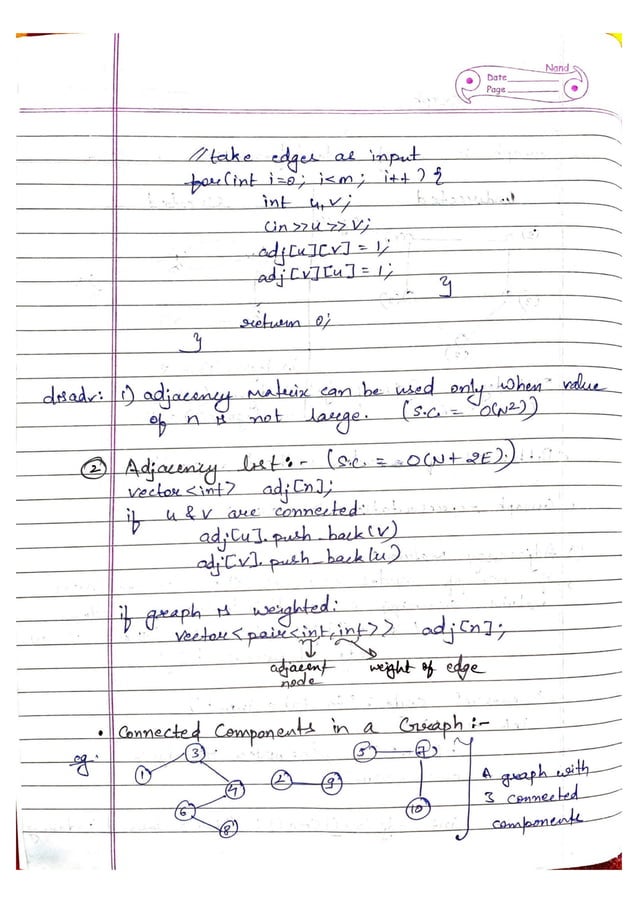 Nand
Date
Page
//take edges as input
for(int i=0; i<m; i++) {
int u,v;
cin>>u>>v;
adj[u][v] = 1;
adj[v][u] = 1;
}
return 0;
}
disadv: 1) adjacency matrix can be used only when value
of n is not large. (S.C. = O(N²))
② Adjacency list:- (S.C. = O(N + 2E))
vector<int> adj[n];
if u & v are connected:
adj[u].push_back(v)
adj[v].push_back(u)
if graph is weighted:
vector<pair<int,int>> adj[n];
adjacent weight of edge
node
• Connected Components in a Graph:-
eg: 3 5 7
1 4 2 9 A graph with
6 10 3 connected
8 components